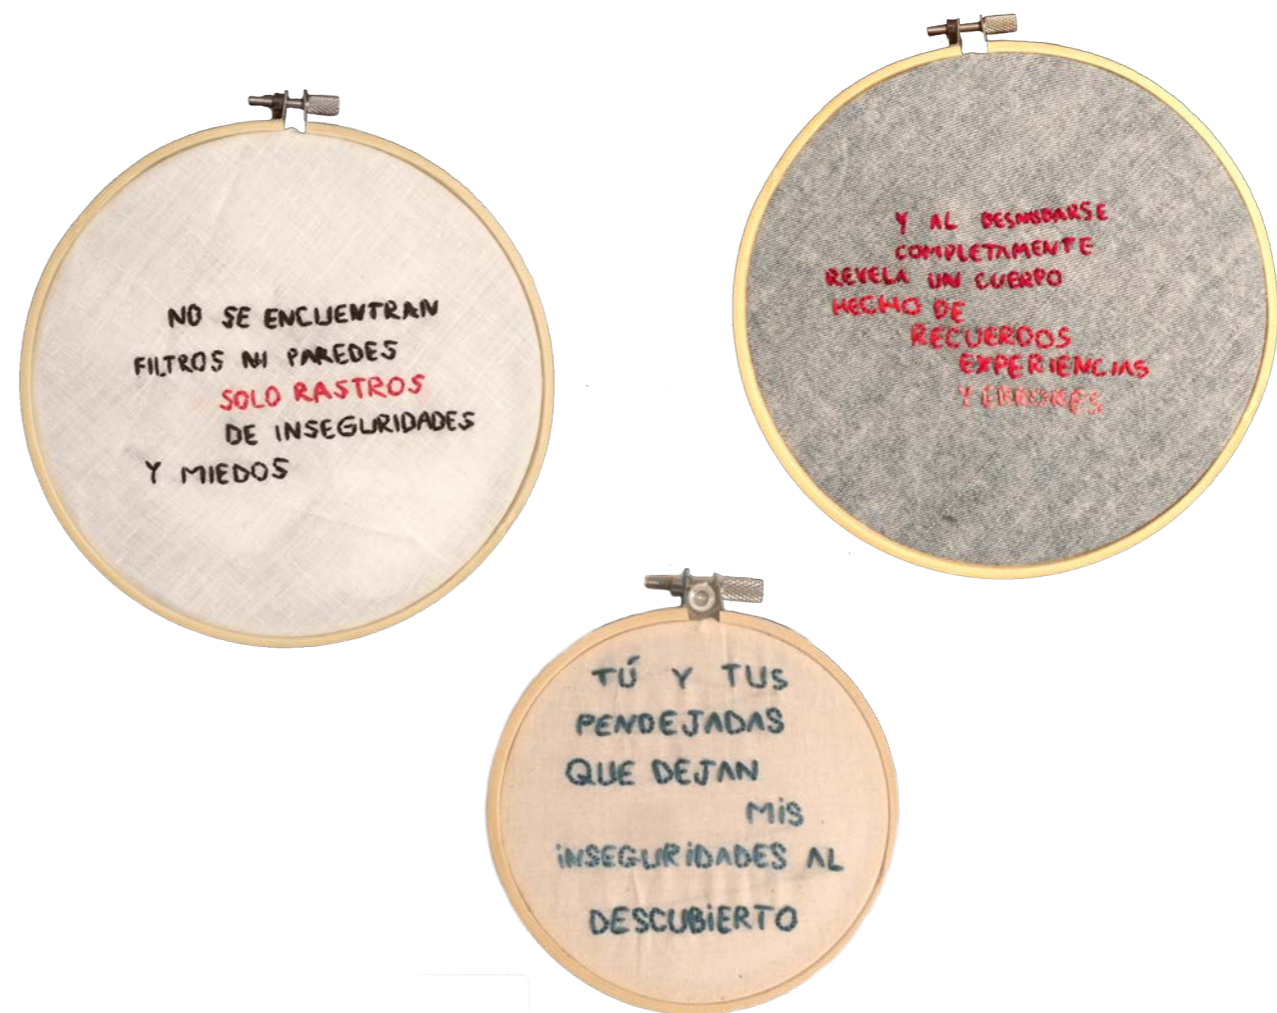 NO SE ENCUENTRAN
FILTROS NI PAREDES
SOLO RASTROS
DE INSEGURIDADES
Y MIEDOS
Y AL DESNUDARSE
COMPLETAMENTE
REVELA UN CUERPO
HECHO DE
RECUERDOS
EXPERIENCIAS
Y ERRORES
TÚ Y TUS
PENDEJADAS
QUE DEJAN
MiS
iNSEGURiDADES AL
DESCUBiERTO